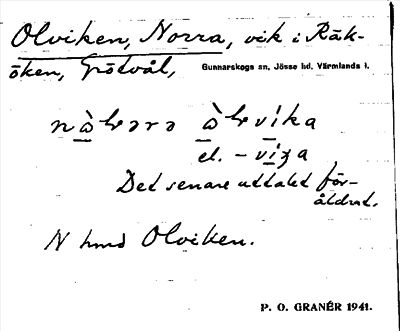 Olviken, Norra, vik i Räk-
öken, Grötvål, Gunnarskogs sn, Jösse hd, Värmlands l.
el.
Det senare uttalet för-
åldrat.
N hmd Olviken.
P. O. GRANÉR 1941.